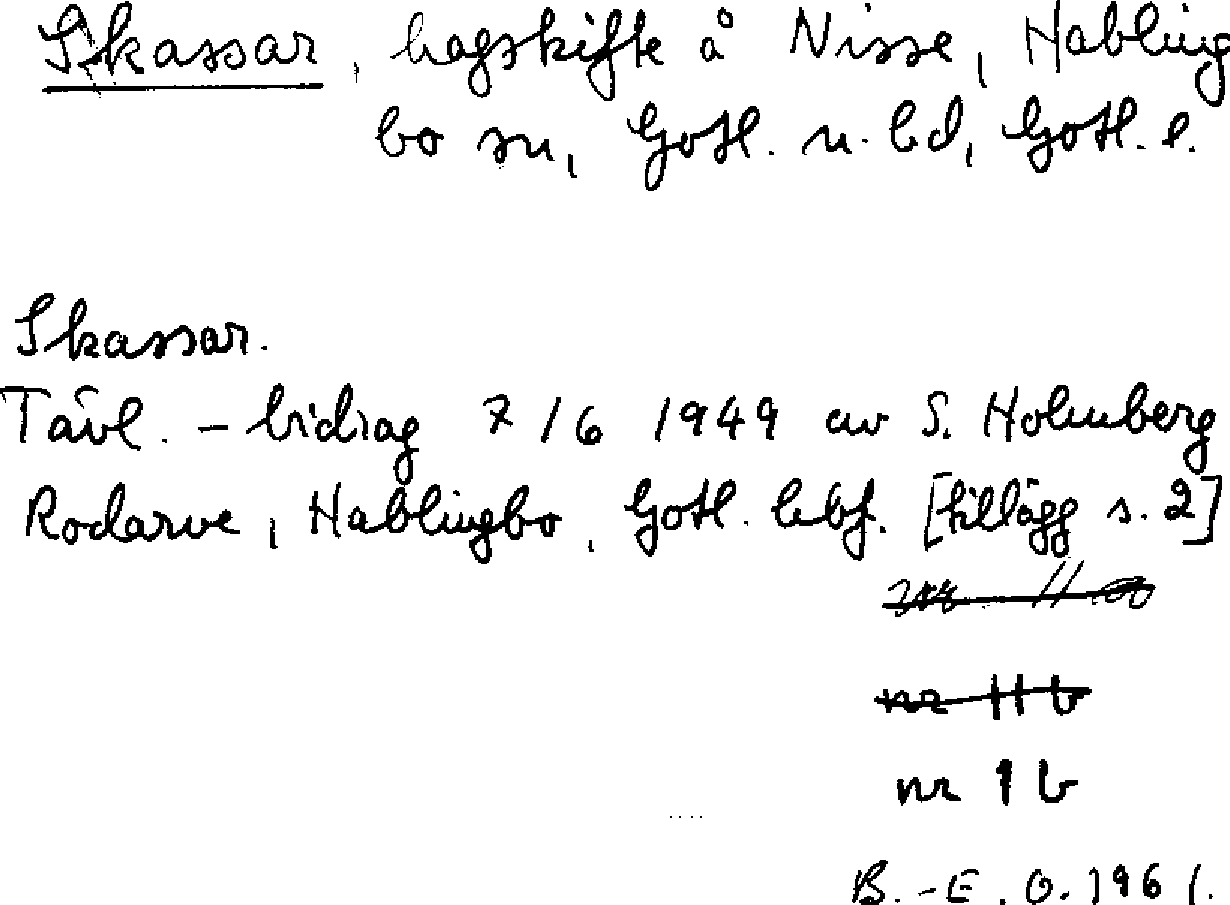 Skassar, hagskifte å Nisse, Habling
bo sn, Gotl. n. hd, Gotl. l.
Skassar.
Tävl. - bidrag 7/6 1949 av S. Holmberg
Rodarve, Hablingbo, Gotl. lbf. [tillägg s. 2]
nr 11 b
nr 1 b
B.-E. O. 1961.